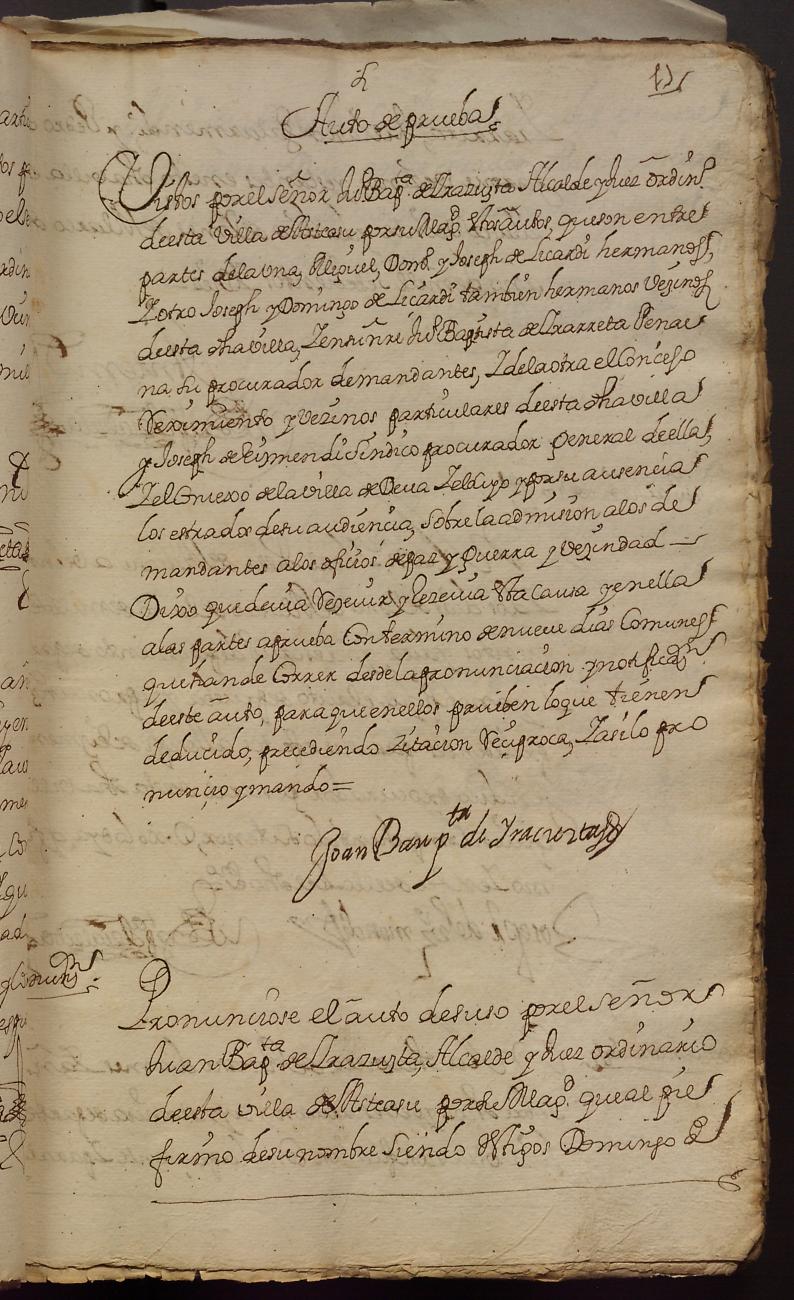 Auto de prueba
Vistos por el señor Juº Bapta. de Yrazusta Alcalde y Juez ordinº
deesta Villa de Asteasu por su Magd. estos autos, que son entre
partes de la una, Miguel, Domº y Joseph de Licardi hermanos,
Y otro Joseph y Domingo de Licardi tambien hermanos Vezinos
deesta dha villa, Y en su nre Juº Baptista de Yzarreta
na su procurador demandantes, Y de la otra el Concejo
Rexim iento y Vezinos particulares deesta dha villa
y Joseph de Eizmendi Sindico procurador General deella,
Y el Concexo de la villa de Deva Y el cuyo y por su ausencia
los estrados de su audiencia, Sobre la admision alos de
mandantes alos oficios de paz y Guerra y Vezindad
Dixo que devia Rezevir y Rezevia esta Causa y en ella
alas partes aprueba Con termino de nueve dias Comunes
que han de Correr desde la pronunciacion y notificaon
deeste auto, para que en ellos prueben lo que tienen
deducido, precediendo Zitacion Reciproca, Y asi lo pro
nuncio y mando =
Joan Baupta de Yracuzta
Pronunciose el auto de suso por el señor
Juan Bapta de Yrazusta, Alcalde y Juez ordinario
deesta villa de Asteasu por su Magd. que al pie
firmo de su nombre Siendo testigos Domingo de